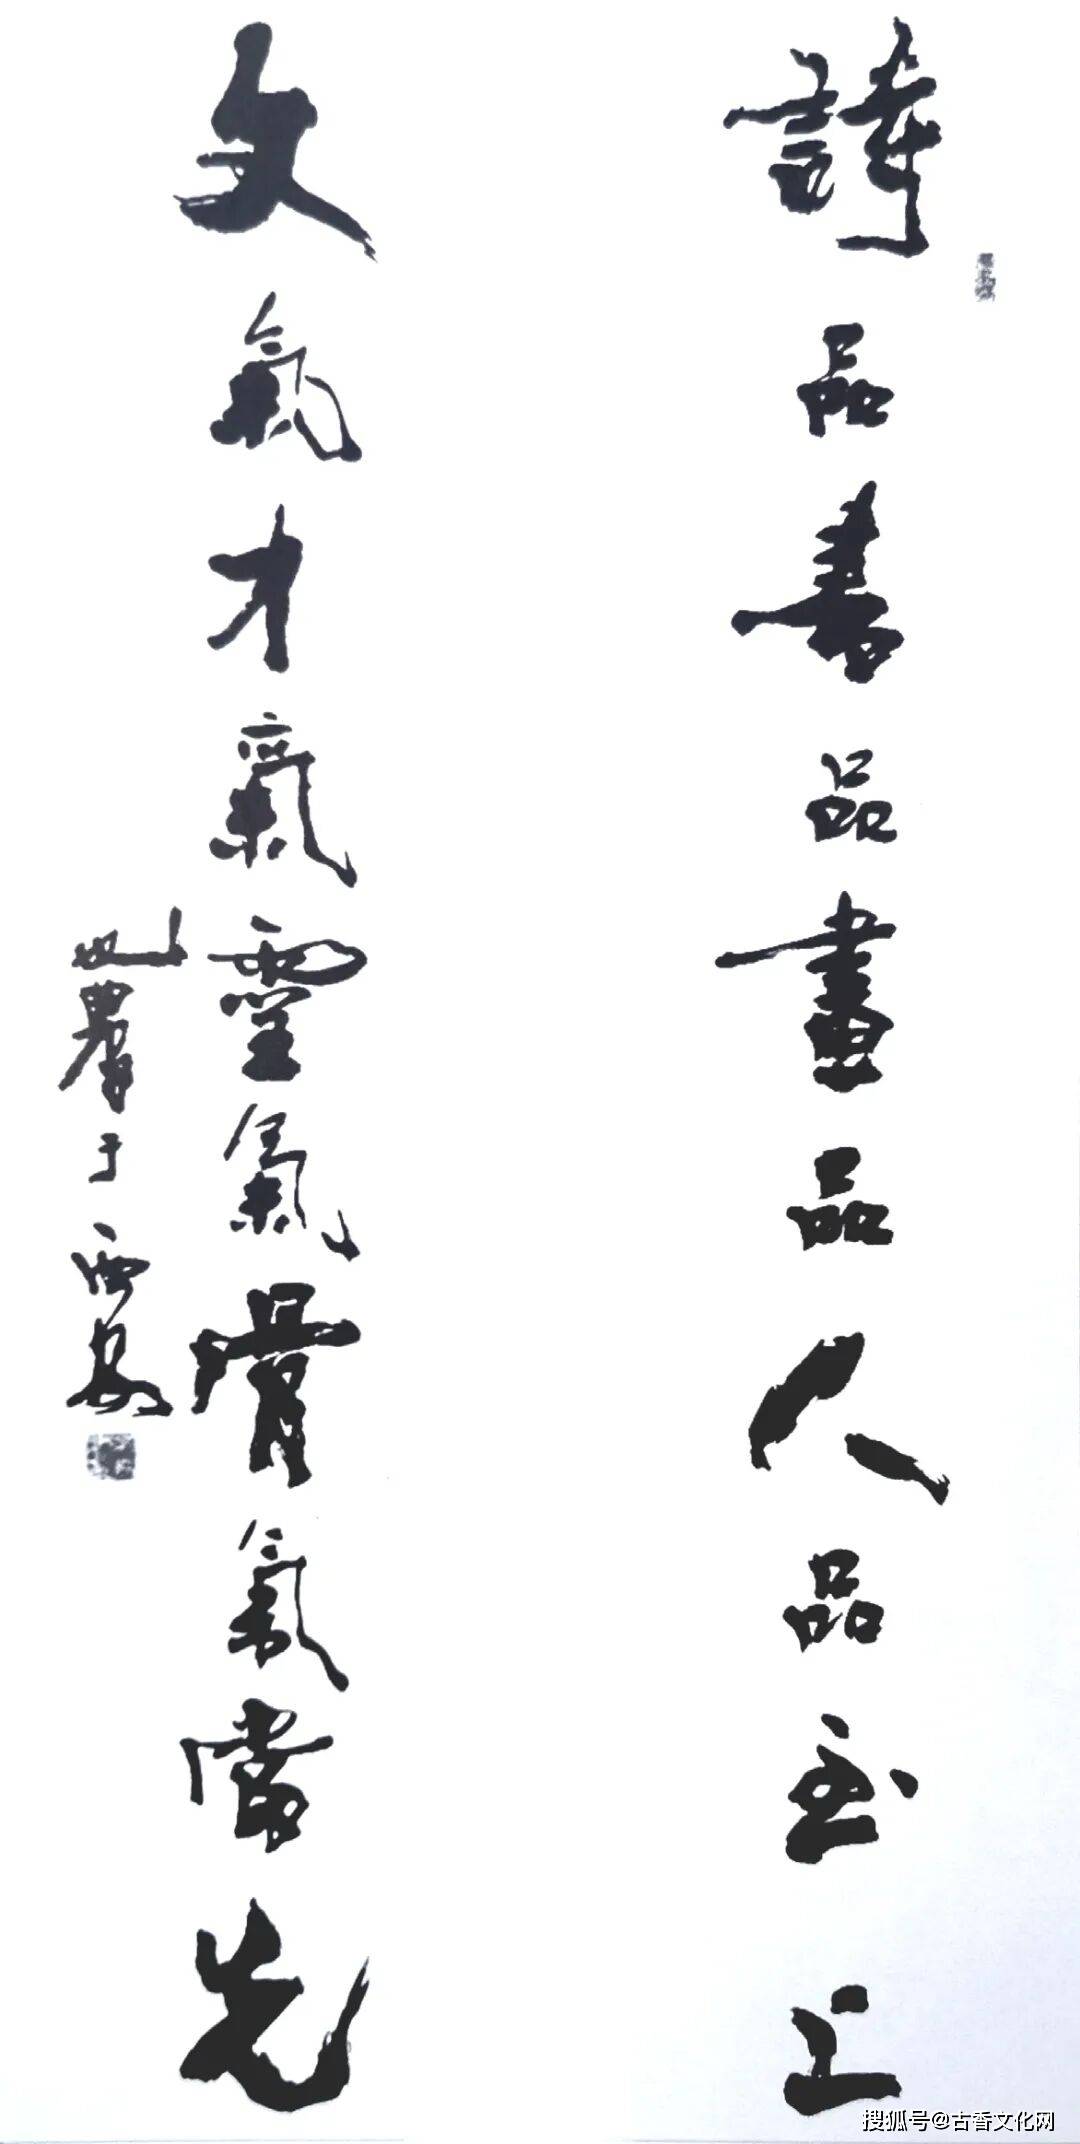 詩品書品畫品人品至上
文氣才氣靈氣骨氣當先
于西安
搜狐号@古香文化网